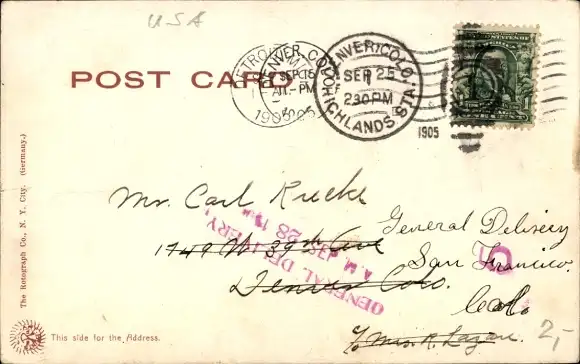 USA
POST CARD
DETROIT, MICH.
SEP 15
11-PM
1905
DENVER, COLO.
DENVER, COLO.
SEP 25
230PM
HIGHLANDS STA.
1905
Mr. Carl Rucke
1749 W. 39th Ave
Denver Colo.
c/o Mrs. R. Lazan.
General Delivery
San Francisco.
Cal.
GENERAL DELIVERY
A.M. SEP 28
5
2,-
The Rotograph Co., N. Y. City. (Germany.)
This side for the Address.